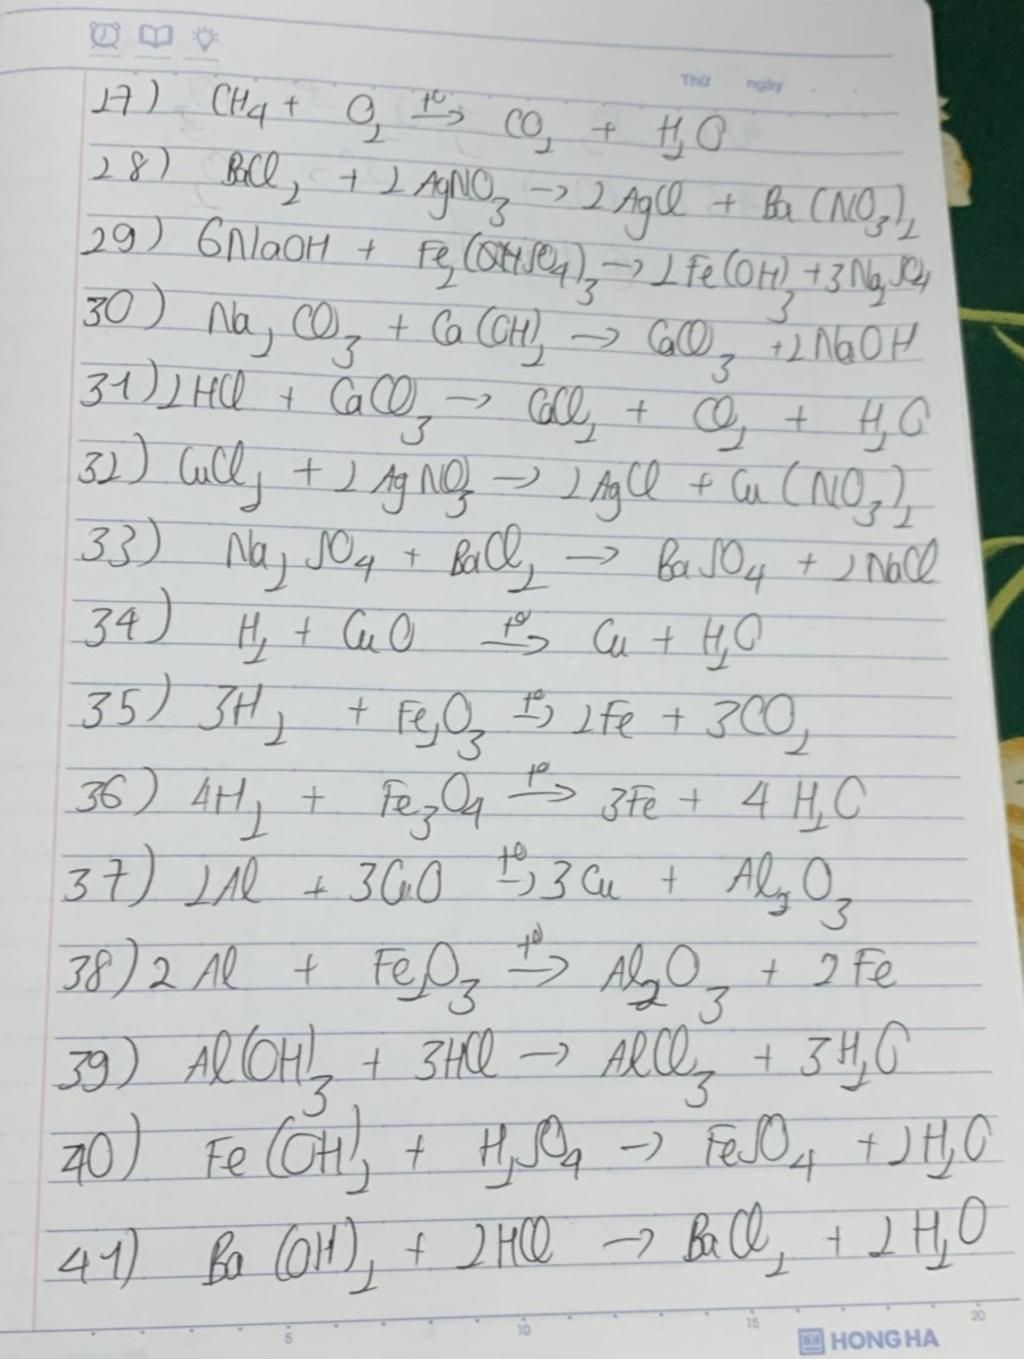 Thứ ngày
27) CH4 + O2 t°→ CO2 + H2O
28) BaCl2 + 2AgNO3 → 2AgCl + Ba(NO3)2
29) 6NaOH + Fe2(SO4)3 → 2Fe(OH)3 + 3Na2SO4
30) Na2CO3 + Ca(OH)2 → CaCO3 + 2NaOH
31) 2HCl + CaCO3 → CaCl2 + CO2 + H2O
32) CuCl2 + 2AgNO3 → 2AgCl + Cu(NO3)2
33) Na2SO4 + BaCl2 → BaSO4 + 2NaCl
34) H2 + CuO t°→ Cu + H2O
35) 3H2 + Fe2O3 t°→ 2Fe + 3CO2
36) 4H2 + Fe3O4 t°→ 3Fe + 4H2O
37) 2Al + 3CuO t°→ 3Cu + Al2O3
38) 2Al + Fe2O3 t°→ Al2O3 + 2Fe
39) Al(OH)3 + 3HCl → AlCl3 + 3H2O
40) Fe(OH)2 + H2SO4 → FeSO4 + 2H2O
41) Ba(OH)2 + 2HCl → BaCl2 + 2H2O
5 10 15 20
HH HONG HA